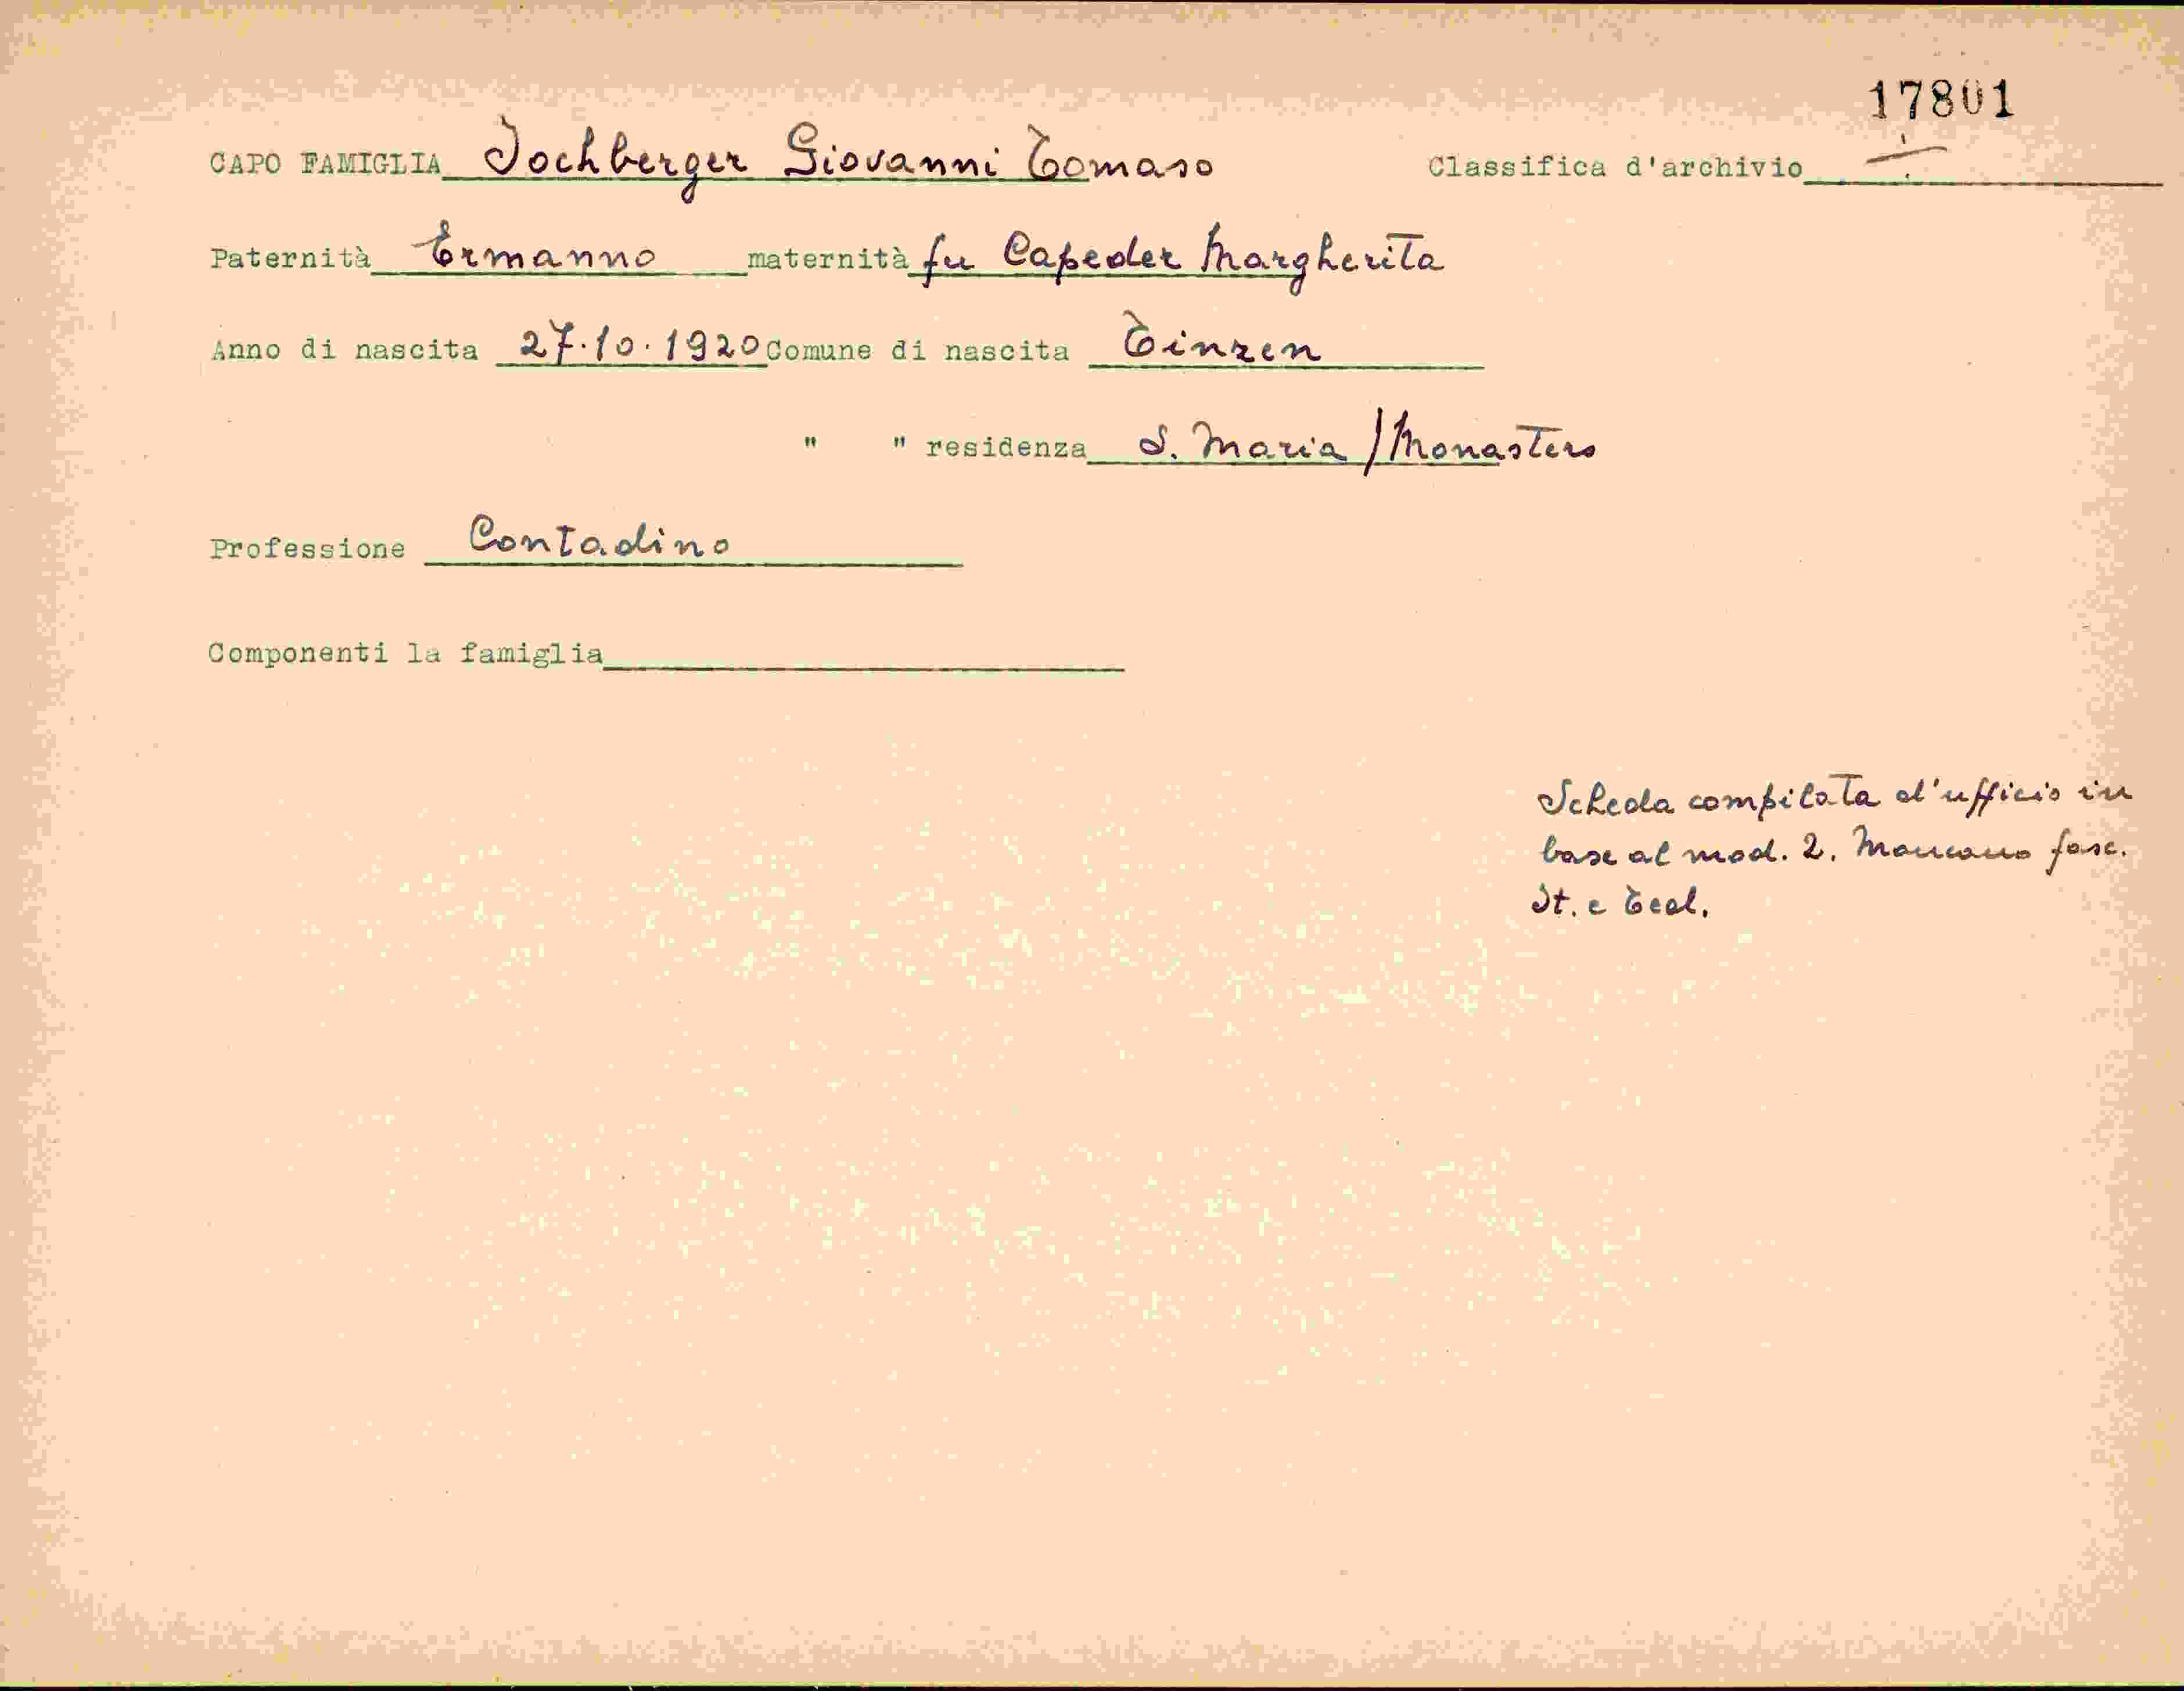 17801
CAPO FAMIGLIA Jochberger Giovanni Tomaso Classifica d'archivio
Paternità Ermanno maternità fu Capeder Margherita
Anno di nascita 27.10.1920 Comune di nascita Tinzen
" " residenza S. Maria / Monastero
Professione Contadino
Componenti la famiglia
Scheda compilata d'ufficio in
base al mod. 2. Mancano fasc.
It. e Ted.